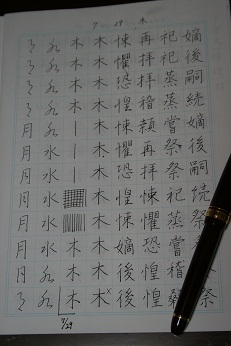 7 29 木
嫡後嗣続嫡後嗣続祭祭
祀祀蒸蒸嘗祭祭祀蒸嘗稽
再拝拝稽顙再拝悚懼恐惶惶
悚懼恐惶悚懼恐惶悚嫡後後
木木木木木木木木木木木木×
木木木木木木木
水水水水水水水水水水水水
月月月月月月月月月月月月
7/29